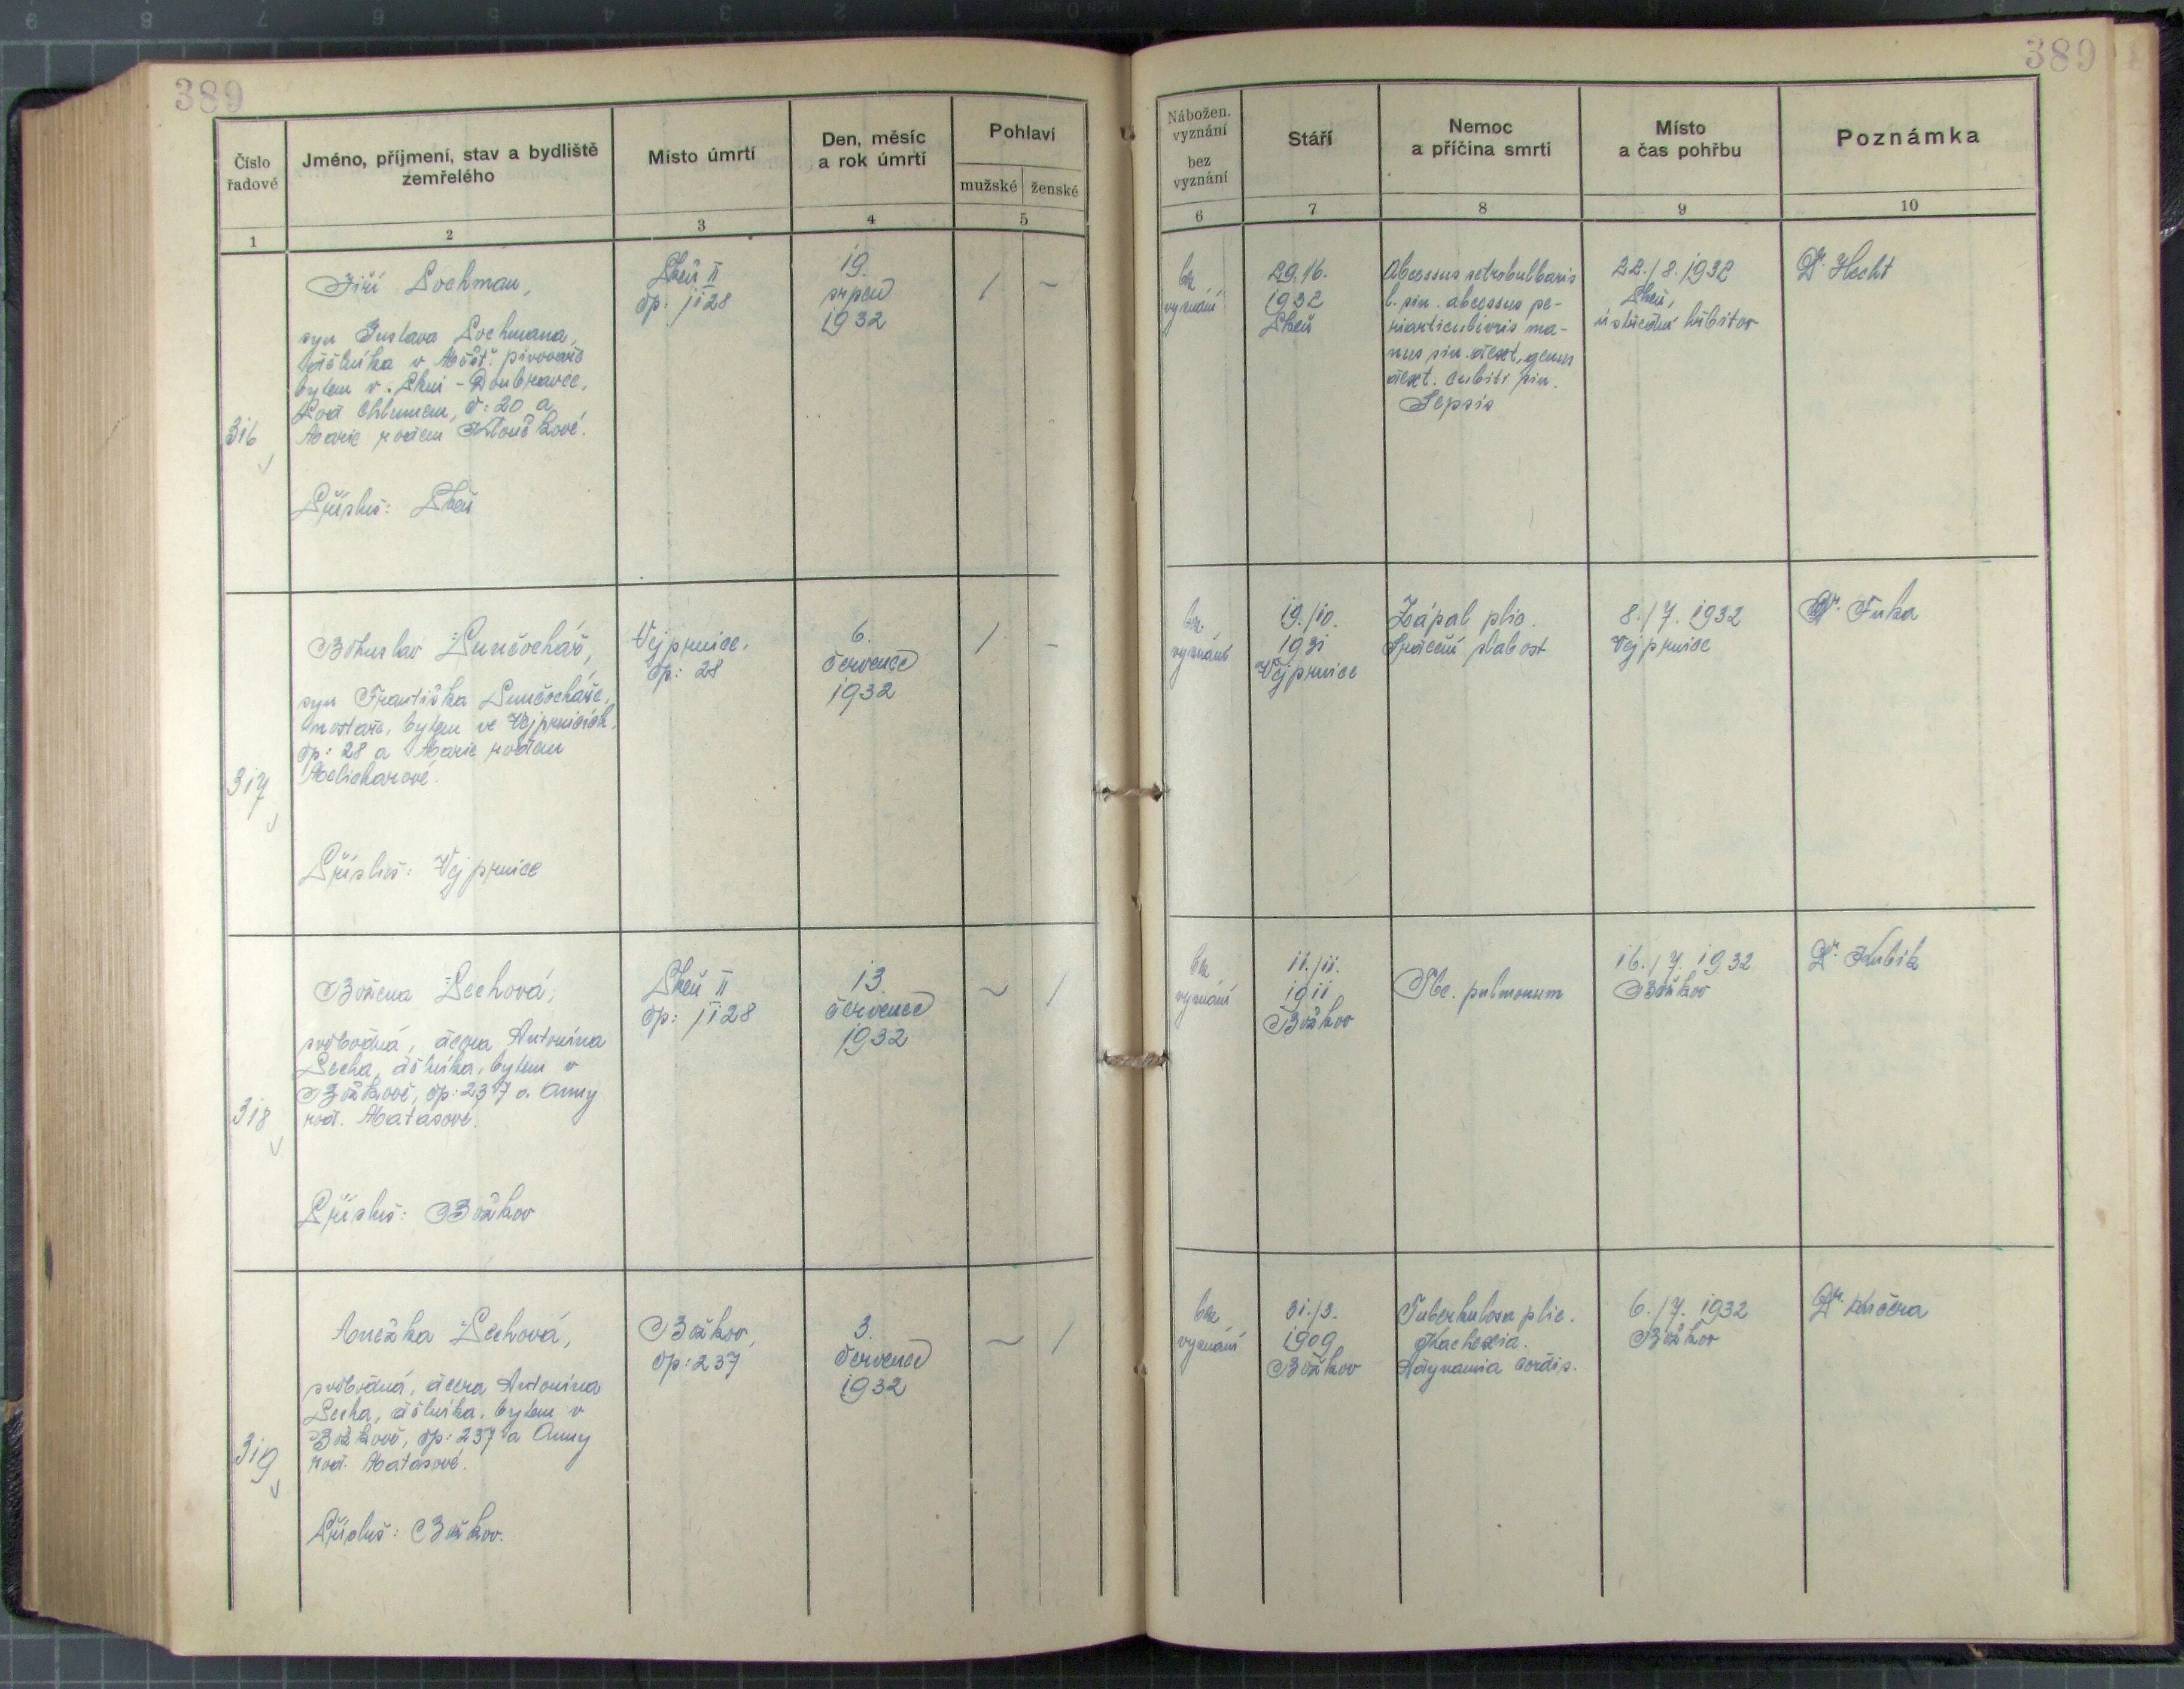 389
389
Číslo řadové
Jméno, příjmení, stav a bydliště zemřelého
Místo úmrtí
Den, měsíc a rok úmrtí
Pohlaví
mužské
ženské
Nábožen. vyznání
bez vyznání
Stáří
Nemoc a příčina smrti
Místo a čas pohřbu
Poznámka
1
2
3
4
5
6
7
8
9
10
316
Jiří Lochman,
syn Gustava Lochmana,
dělníka v Měšť. pivovaře
bytem v Plzni - Doubravce,
Pod Chlumem, č: 20 a
Marie rozem
Přísluš: Plzeň
Plzeň II
čp: 1128
19.
srpna
1932
/
~
bez
vyznání
29./6.
1932
Plzeň
Abcessus retrobulbaris
b. sin. abcessus pe-
riarticularis ma-
nus sin. dext, genus
dext. cubiti sin.
Sepsis
22./8. 1932
Plzeň,
ústřední hřbitov
Dr. Hecht
317
Bohuslav
syn Františka
bytem ve Vejprnicích,
čp: 28 a Marie rozem
Melicharové.
Přísluš: Vejprnice
Vejprnice,
čp: 28
6.
července
1932
/
~
bez
vyznání
19./10.
1931
Vejprnice
Zápal plic.
Srdeční slabost
8./7. 1932
Vejprnice
Dr. Fuka
318
Božena Pechová,
svobodná, dcera Antonína
Pecha, dělníka, bytem v
Božkově, čp: 237 a Anny
roz. Matasové.
Přísluš: Božkov
Plzeň II
čp: 1128
13.
července
1932
~
/
bez
vyznání
11./11.
1911
Božkov
Tbc. pulmonum
16./7. 1932
Božkov
Dr. Kubik
319
Anežka Pechová,
svobodná, dcera Antonína
Pecha, dělníka, bytem v
Božkově, čp: 237 a Anny
roz. Matasové.
Přísluš: Božkov.
Božkov,
čp: 237
3.
července
1932
~
/
bez
vyznání
31./3.
1909
Božkov
Tuberkulosa plic.
Kachexia.
Adynamia cordis.
6./7. 1932
Božkov
Dr. Kučera